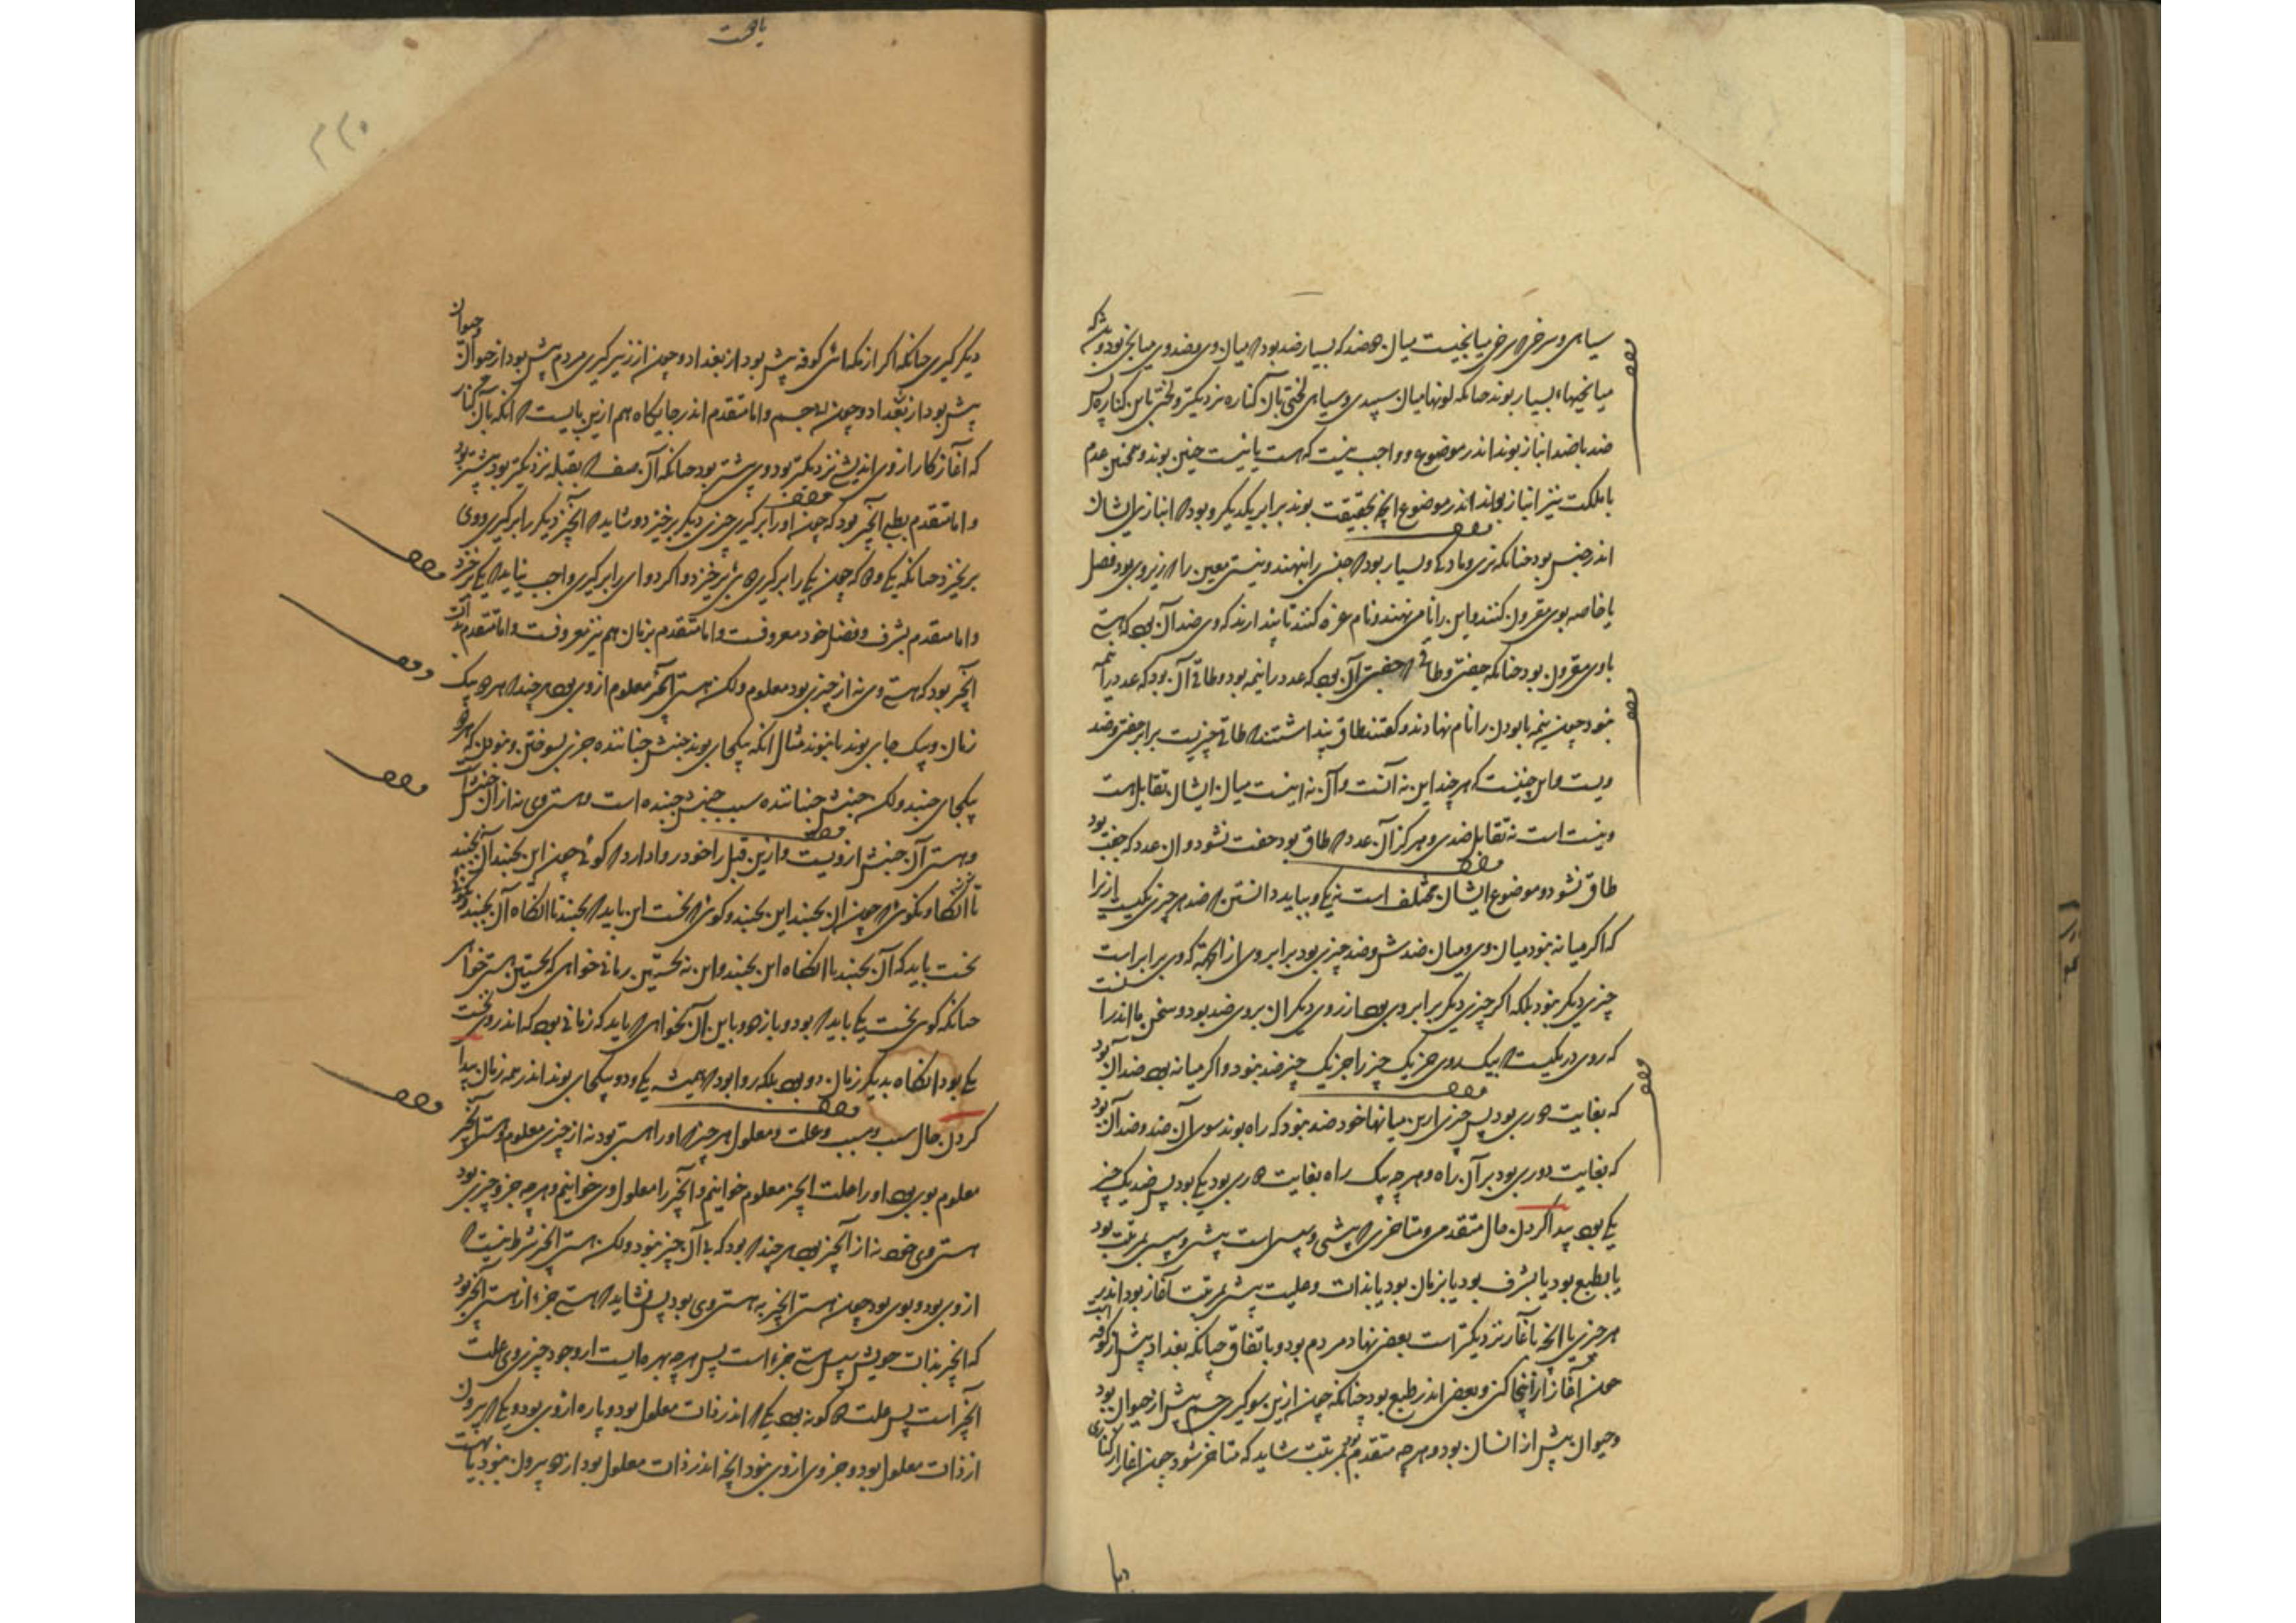 سیاهی و سرخی میانجیست میان دو ضد که بسیار ضد بود که میان وی و ضد وی میانجی بود و بود که
میانجیها بسیار بوند چنانکه لونها میان سپیدی و سیاهی لختی بآن کناره نزدیکتر و لختی باین کناره پس
ضد با ضد انباز بوند اندر موضوع و واجب نیست که هست یا نیست چنین بوند و همچنین عدم
با ملکت نیز انباز بوند اندر موضوع آنچه بحقیقت بوند برابر یکدیگر و بود که انبازی ایشان
اندر جنس بود چنانکه نری و مادگی و بسیار بود که جنسی را بنهند و نیستی معین را که زیر وی بود فصل
یا خاصه بوی مقرون کنند و این را نامی نهند و نام غره کنند تا پندارند که وی ضد آن بود که هستی
با وی مقرون بود چنانکه جفتی و طاقی که جفتی آن بود که عدد را نیمه بود و طاقی آن بود که عدد را نیمه
نبود چون نیمه نابودن را نام نهادند و گفتند طاق پنداشتند که طاقی چیزیست برابر جفتی و ضد
ویست و این چنینست که هر چند این نه آنست و آن نه اینست میان ایشان تقابل هست
و نیست است نه تقابل ضدی و هرگز آن عدد که طاق بود جفت نشود و آن عدد که جفت بود
طاق نشود و موضوع ایشان مختلف است نه یکی و بباید دانستن که ضد هر چیزی یکیست ازیرا
که اگر میانه نبود میان وی و میان ضدش و ضد چیزی بود برابر وی از آن جهة که وی برابر است
چیزی دیگر نبود بلکه اگر چیزی دیگر برابر وی بود از روی دیگر آن بروی ضد بود و سخن ما اندر آنست
که روی در یکیست که بیک روی جز یک چیز را جز یک چیز ضد نبود و اگر میانه بود ضد آن بود
که بغایت دوری بود پس چیزی ازین میانها خود ضد نبود که راه بوند سوی آن ضد و ضد آن بود
که بغایت دوری بود بر آن راه و هر چه بیک راه بغایت دوری بود یکی بود پس ضد یک چیز
یکی بود پیدا کردن حال متقدمی و متاخری که پیشی و سپسی است پیشی و سپسی بمرتبت بود
یا بطبع بود یا بشرف بود یا بزمان بود یا بذات و علیت پیشی بمرتبت آغاز بود اندر
هر چیزی یا آنچه بآغاز نزدیکتر است بعضی بنهاد مردم بود و باتفاق چنانکه بغداد پیش از کوفه است
چون آغاز از آنجا کنی و بعضی اندر طبع بود چنانکه چون ازین سو گیری جسم پیش از حیوان بود
و حیوان پیش از انسان بود و هر چه متقدم بود بمرتبت شاید که متاخر شود چون آغاز از کناری
دیگر
یافت
دیگر گیری چنانکه اگر از مکه آئی کوفه پیش بود از بغداد و چون از زیر گیری مردم پیش بود از حیوان و حیوان
پیش بود از جسم و اما متقدم اندر جایگاه هم ازین بابست که آنکه بآن کنار
که آغاز کار از وی اندیشی نزدیکتر بود وی پیشتر بود چنانکه آن صف که بقبله نزدیکتر بود پیشتر بود
و اما متقدم بطبع آنچیز بود که چون او را برگیری چیزی دیگر برخیزد و شاید که آنچیز دیگر را برگیری و وی
برنخیزد چنانکه یکی و دو که چون یکی را برگیری دوئی برخیزد و اگر دوای را برگیری واجب نیاید که یکی برخیزد
و اما متقدم بشرف و فضل خود معروفست و اما متقدم بزمان هم نیز معروفست و اما متقدم بذات
آنچیز بود که هستی وی نه از چیزی بود معلوم ولکن هستی آنچیز معلوم از وی بود هر چند که هر دو بیک
زمان و بیک جای بوند یا نبوند مثال آنکه بیکجای بوند جنبش جنباننده چیزی بسوختن و سودن که هر دو
بیکجای جنبند ولکن جنبش جنباننده سبب جنبش جنبنده است و هستی وی نه از آن جنبش است
و هستی آن جنبش از ویست و ازین قبل را خرد روا دارد که گوئی چون این بجنبد آن بجنبد
تا آنگاه و نگوئی که چون آن بجنبد این بجنبد و گوئی که نخست این باید که بجنبد تا آنگاه آن بجنبد و نگوئی
نخست باید که آن بجنبد تا آنگاه این بجنبد و این نه نخستین زمانی خواهی که نخستین هستی خواهی
چنانکه گوئی نخست یکی باید که بود و باز دو و باین آن نخواهی که باید که زمانی بود که اندر وی نخست
یکی بود آنگاه بدیگر زمان دو بود بلکه روا بود که همیشه یکی و دو بیکجای بوند اندر همه زمان پیدا
کردن حال سبب و مسبب و علت و معلول هر چیزی که او را هستی بود نه از چیزی معلوم و هستی آنچیز
معلوم بوی بود او را علت آنچیز معلوم خوانیم و آنچیز را معلول وی خوانیم و هر چه جزو چیزی بود
هستی وی خود نه از آنچیز بود هر چند که بود که بی آن چیز نبود ولکن هستی آنچیز شرط نیست که
از وی بود و بوی بود چون هستی آنچیز به هستی وی بود پس نشاید که هستی جزء از هستی آنچیز بود
که آنچیز بذات خویش سپس هستی جزء است پس هر چه بهره ایست از وجود چیزی وی علت
آنچیز است پس علت دو گونه بود یکی که اندر ذات معلول بود و پاره از وی بود و یکی که بیرون
از ذات معلول بود و جزوی از وی نبود آنچه اندر ذات معلول بود از دو بیرون نبود یا هست